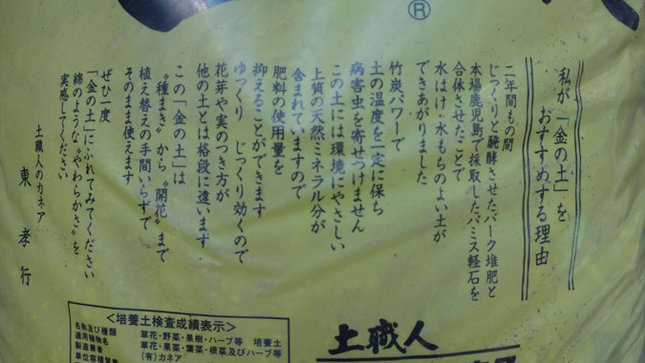 ®
私が「金の土」を
おすすめする理由
二年間もの間
じっくりと醗酵させたバーク堆肥と
本場鹿児島で採取したパミス軽石を
合体させたことで
水はけ・水もちのよい土が
できあがりました
竹炭パワーで
土の温度を一定に保ち
病害虫を寄せつけません
この土には環境にやさしい
上質の天然ミネラル分が
含まれていますので
肥料の使用量を
抑えることができます
ゆっくり じっくり効くので
花芽や実のつき方が
他の土とは格段に違います
この「金の土」は
〝種まき〟から〝開花〟まで
植え替えの手間いらずで
そのまま使えます
ぜひ一度
「金の土」にふれてみてください
綿のような〝やわらかさ〟を
実感してください
土職人のカネア
東 孝行
<培養土検査成績表示>
名称及び種類 草花・野菜・果樹・ハーブ等 培養土
適用植物名 草花・果菜・葉菜・根菜及びハーブ等
製造業者 (有)カネア
単位容積質量
土職人